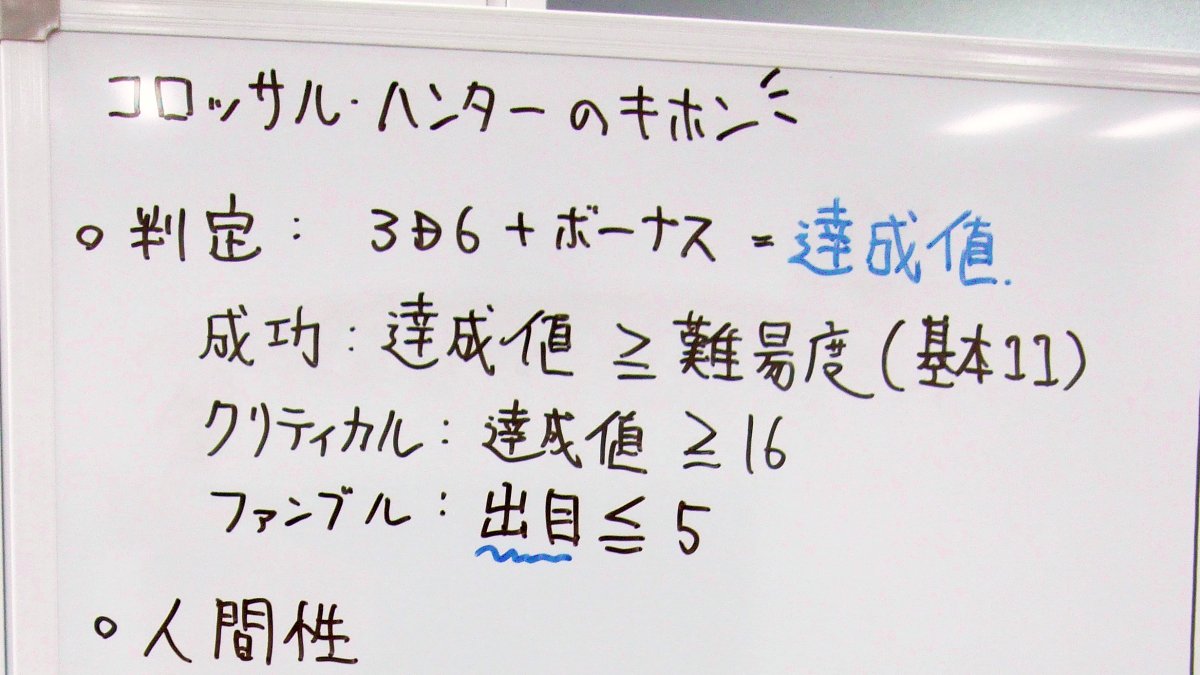 コロッサル・ハンターのキホン
○ 判定: 3D6 + ボーナス = 達成値.
成功: 達成値 ≧ 難易度(基本11)
クリティカル: 達成値 ≧ 16
ファンブル: 出目 ≦ 5
○ 人間性